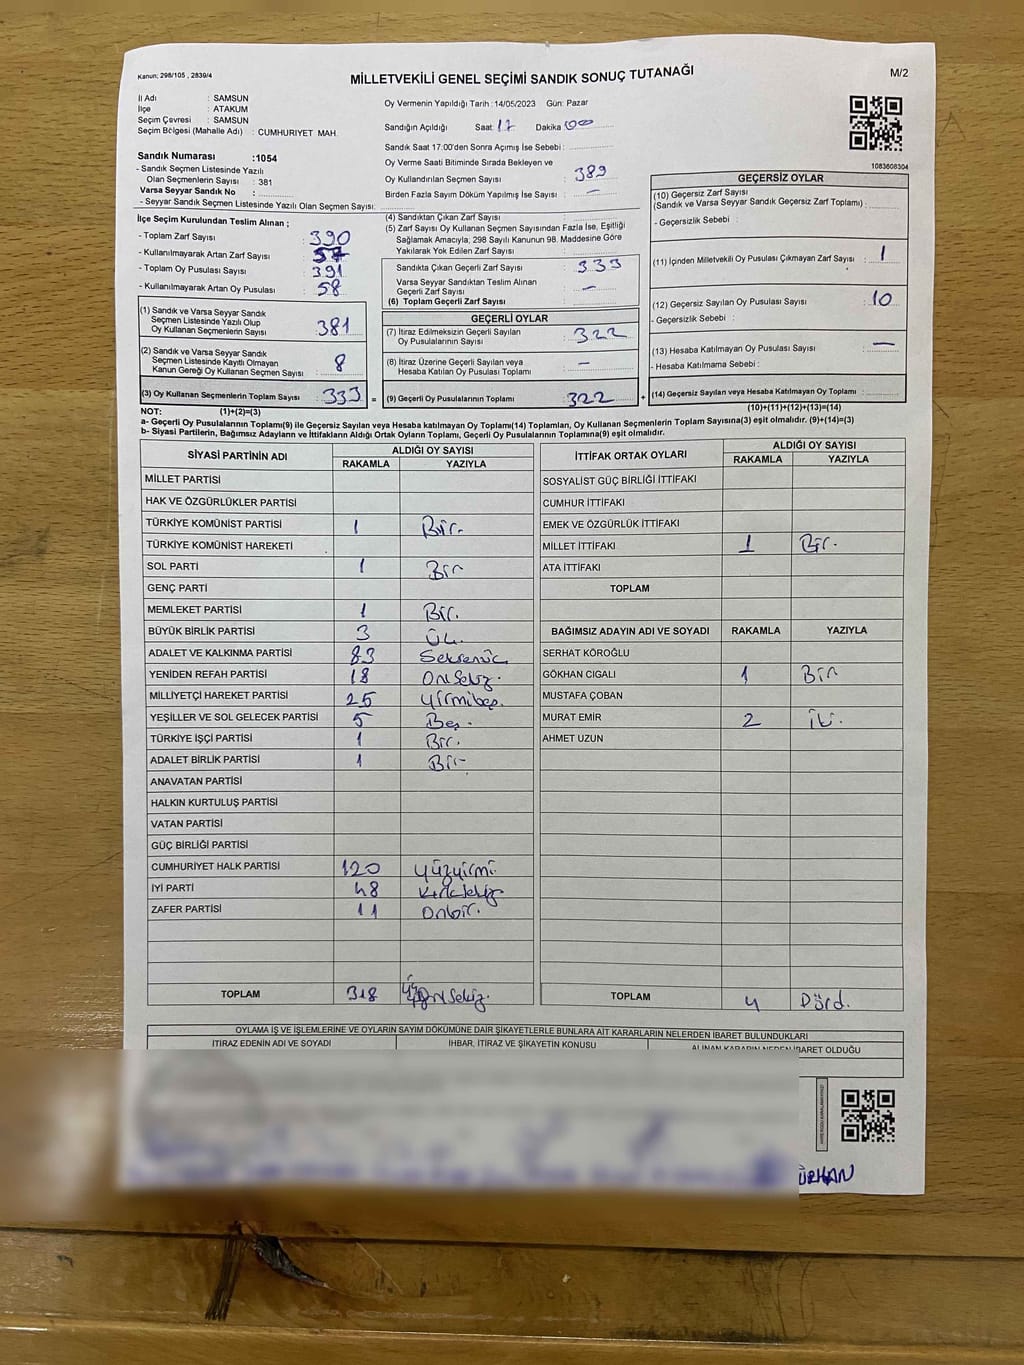 Kanun; 298/105 , 2839/4
MİLLETVEKİLİ GENEL SEÇİMİ SANDIK SONUÇ TUTANAĞI
M/2
İl Adı : SAMSUN
İlçe : ATAKUM
Seçim Çevresi : SAMSUN
Seçim Bölgesi (Mahalle Adı) : CUMHURIYET MAH.
Oy Vermenin Yapıldığı Tarih :14/05/2023 Gün: Pazar
Sandığın Açıldığı Saat: 17 Dakika 00
Sandık Saat 17:00'den Sonra Açımış İse Sebebi :
Oy Verme Saati Bitiminde Sırada Bekleyen ve
Oy Kullandırılan Seçmen Sayısı : 389
Birden Fazla Sayım Döküm Yapılmış İse Sayısı : —
Sandık Numarası :1054
- Sandık Seçmen Listesinde Yazılı
Olan Seçmenlerin Sayısı : 381
Varsa Seyyar Sandık No :
- Seyyar Sandık Seçmen Listesinde Yazılı Olan Seçmen Sayısı:
1083608304
İlçe Seçim Kurulundan Teslim Alınan ;
- Toplam Zarf Sayısı : 390
- Kullanılmayarak Artan Zarf Sayısı : 57
- Toplam Oy Pusulası Sayısı : 391
- Kullanılmayarak Artan Oy Pusulası : 58
(1) Sandık ve Varsa Seyyar Sandık
Seçmen Listesinde Yazılı Olup
Oy Kullanan Seçmenlerin Sayısı : 381
(2) Sandık ve Varsa Seyyar Sandık
Seçmen Listesinde Kayıtlı Olmayan
Kanun Gereği Oy Kullanan Seçmen Sayısı : 8
(3) Oy Kullanan Seçmenlerin Toplam Sayısı : 333 =
(4) Sandıktan Çıkan Zarf Sayısı :
(5) Zarf Sayısı Oy Kullanan Seçmen Sayısından Fazla İse, Eşitliği
Sağlamak Amacıyla; 298 Sayılı Kanunun 98. Maddesine Göre
Yakılarak Yok Edilen Zarf Sayısı :
Sandıkta Çıkan Geçerli Zarf Sayısı : 333
Varsa Seyyar Sandıktan Teslim Alınan
Geçerli Zarf Sayısı : —
(6) Toplam Geçerli Zarf Sayısı :
GEÇERLİ OYLAR
(7) İtiraz Edilmeksizin Geçerli Sayılan
Oy Pusulalarının Sayısı : 322
(8) İtiraz Üzerine Geçerli Sayılan veya
Hesaba Katılan Oy Pusulası Toplamı : —
(9) Geçerli Oy Pusulalarının Toplamı : 322 +
GEÇERSİZ OYLAR
(10) Geçersiz Zarf Sayısı
(Sandık ve Varsa Seyyar Sandık Geçersiz Zarf Toplamı) :
- Geçersizlik Sebebi :
(11) İçinden Milletvekili Oy Pusulası Çıkmayan Zarf Sayısı : 1
(12) Geçersiz Sayılan Oy Pusulası Sayısı : 10
- Geçersizlik Sebebi :
(13) Hesaba Katılmayan Oy Pusulası Sayısı : —
- Hesaba Katılmama Sebebi :
(14) Geçersiz Sayılan veya Hesaba Katılmayan Oy Toplamı :
NOT: (1)+(2)=(3) (10)+(11)+(12)+(13)=(14)
a- Geçerli Oy Pusulalarının Toplamı(9) ile Geçersiz Sayılan veya Hesaba katılmayan Oy Toplamı(14) Toplamları, Oy Kullanan Seçmenlerin Toplam Sayısına(3) eşit olmalıdır. (9)+(14)=(3)
b- Siyasi Partilerin, Bağımsız Adayların ve İttifakların Aldığı Ortak Oyların Toplamı, Geçerli Oy Pusulalarının Toplamına(9) eşit olmalıdır.
SİYASİ PARTİNİN ADI ALDIĞI OY SAYISI
RAKAMLA YAZIYLA
MİLLET PARTİSİ
HAK VE ÖZGÜRLÜKLER PARTİSİ
TÜRKİYE KOMÜNİST PARTİSİ 1 Bir.
TÜRKİYE KOMÜNİST HAREKETİ
SOL PARTİ 1 Bir
GENÇ PARTİ
MEMLEKET PARTİSİ 1 Bir.
BÜYÜK BİRLİK PARTİSİ 3 Üç.
ADALET VE KALKINMA PARTİSİ 83 Seksenüç
YENİDEN REFAH PARTİSİ 18 Onsekiz.
MİLLİYETÇİ HAREKET PARTİSİ 25 Yirmibeş.
YEŞİLLER VE SOL GELECEK PARTİSİ 5 Beş.
TÜRKİYE İŞÇİ PARTİSİ 1 Bir.
ADALET BİRLİK PARTİSİ 1 Bir
ANAVATAN PARTİSİ
HALKIN KURTULUŞ PARTİSİ
VATAN PARTİSİ
GÜÇ BİRLİĞİ PARTİSİ
CUMHURİYET HALK PARTİSİ 120 Yüzyirmi
İYİ PARTİ 48 Kırksekiz
ZAFER PARTİSİ 11 Onbir.
TOPLAM 318 Üçyüzonsekiz.
İTTİFAK ORTAK OYLARI ALDIĞI OY SAYISI
RAKAMLA YAZIYLA
SOSYALİST GÜÇ BİRLİĞİ İTTİFAKI
CUMHUR İTTİFAKI
EMEK VE ÖZGÜRLÜK İTTİFAKI
MİLLET İTTİFAKI 1 Bir.
ATA İTTİFAKI
TOPLAM
BAĞIMSIZ ADAYIN ADI VE SOYADI RAKAMLA YAZIYLA
SERHAT KÖROĞLU
GÖKHAN CIGALI 1 Bir
MUSTAFA ÇOBAN
MURAT EMİR 2 İki.
AHMET UZUN
TOPLAM 4 Dörd.
OYLAMA İŞ VE İŞLEMLERİNE VE OYLARIN SAYIM DÖKÜMÜNE DAİR ŞİKAYETLERLE BUNLARA AİT KARARLARIN NELERDEN İBARET BULUNDUKLARI
İTİRAZ EDENİN ADI VE SOYADI İHBAR, İTİRAZ VE ŞİKAYETİN KONUSU ALINAN KARARIN NEDEN İBARET OLDUĞU
ÜRHAN